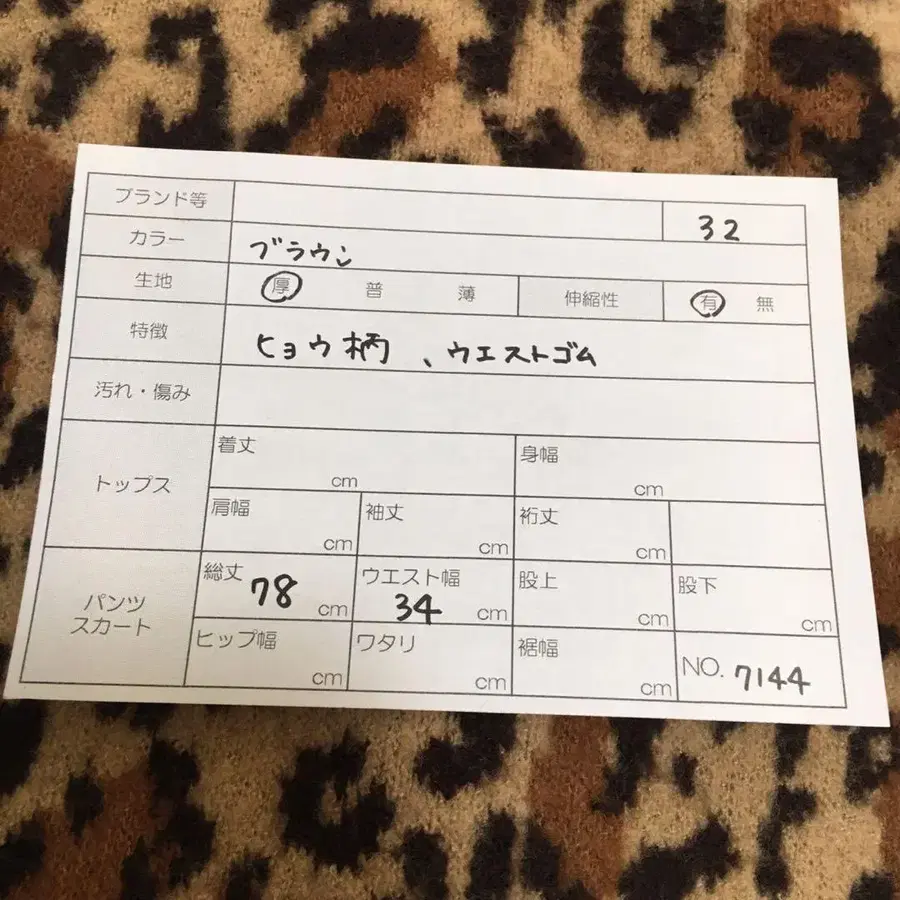 ブランド等 32
カラー ブラウン
生地 厚 普 薄 伸縮性 有 無
特徴 ヒョウ柄、ウエストゴム
汚れ・傷み
トップス
着丈 cm 身幅 cm
肩幅 cm 袖丈 cm 裄丈 cm
パンツ
スカート
総丈 78 cm ウエスト幅 34 cm 股上 cm 股下 cm
ヒップ幅 cm ワタリ cm 裾幅 cm NO. 7144